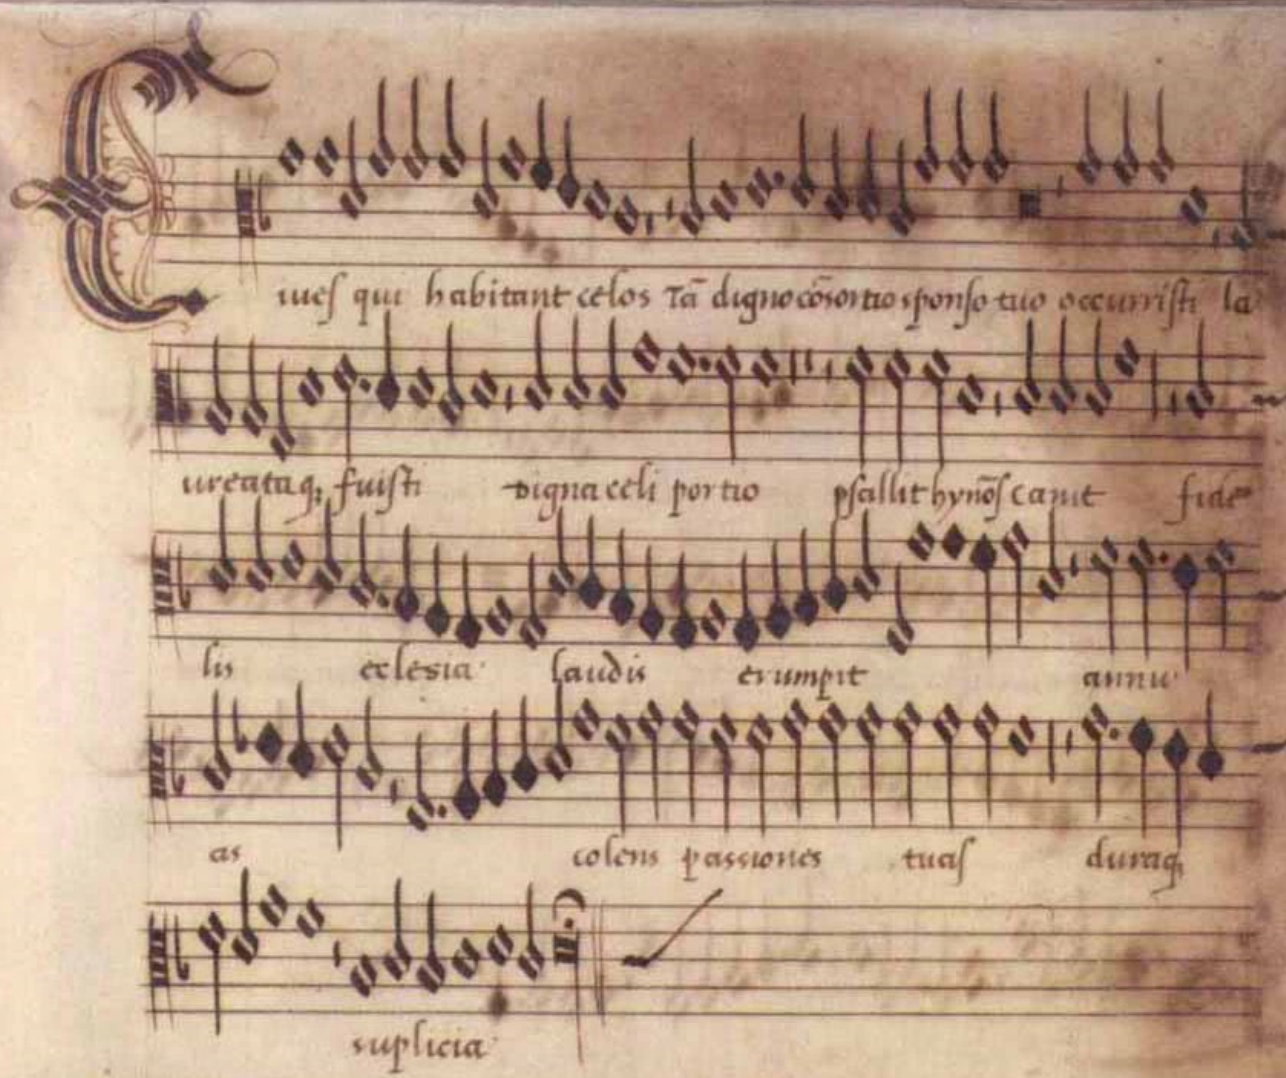 Ciues qui habitant celos Tā digno cōsortio sponso tuo occurristi la
ureataq; fuisti digna celi portio psallit hynōs canit fide
lis eclesia laudis erumpit annu
as colens passiones tuas duraq;
suplicia